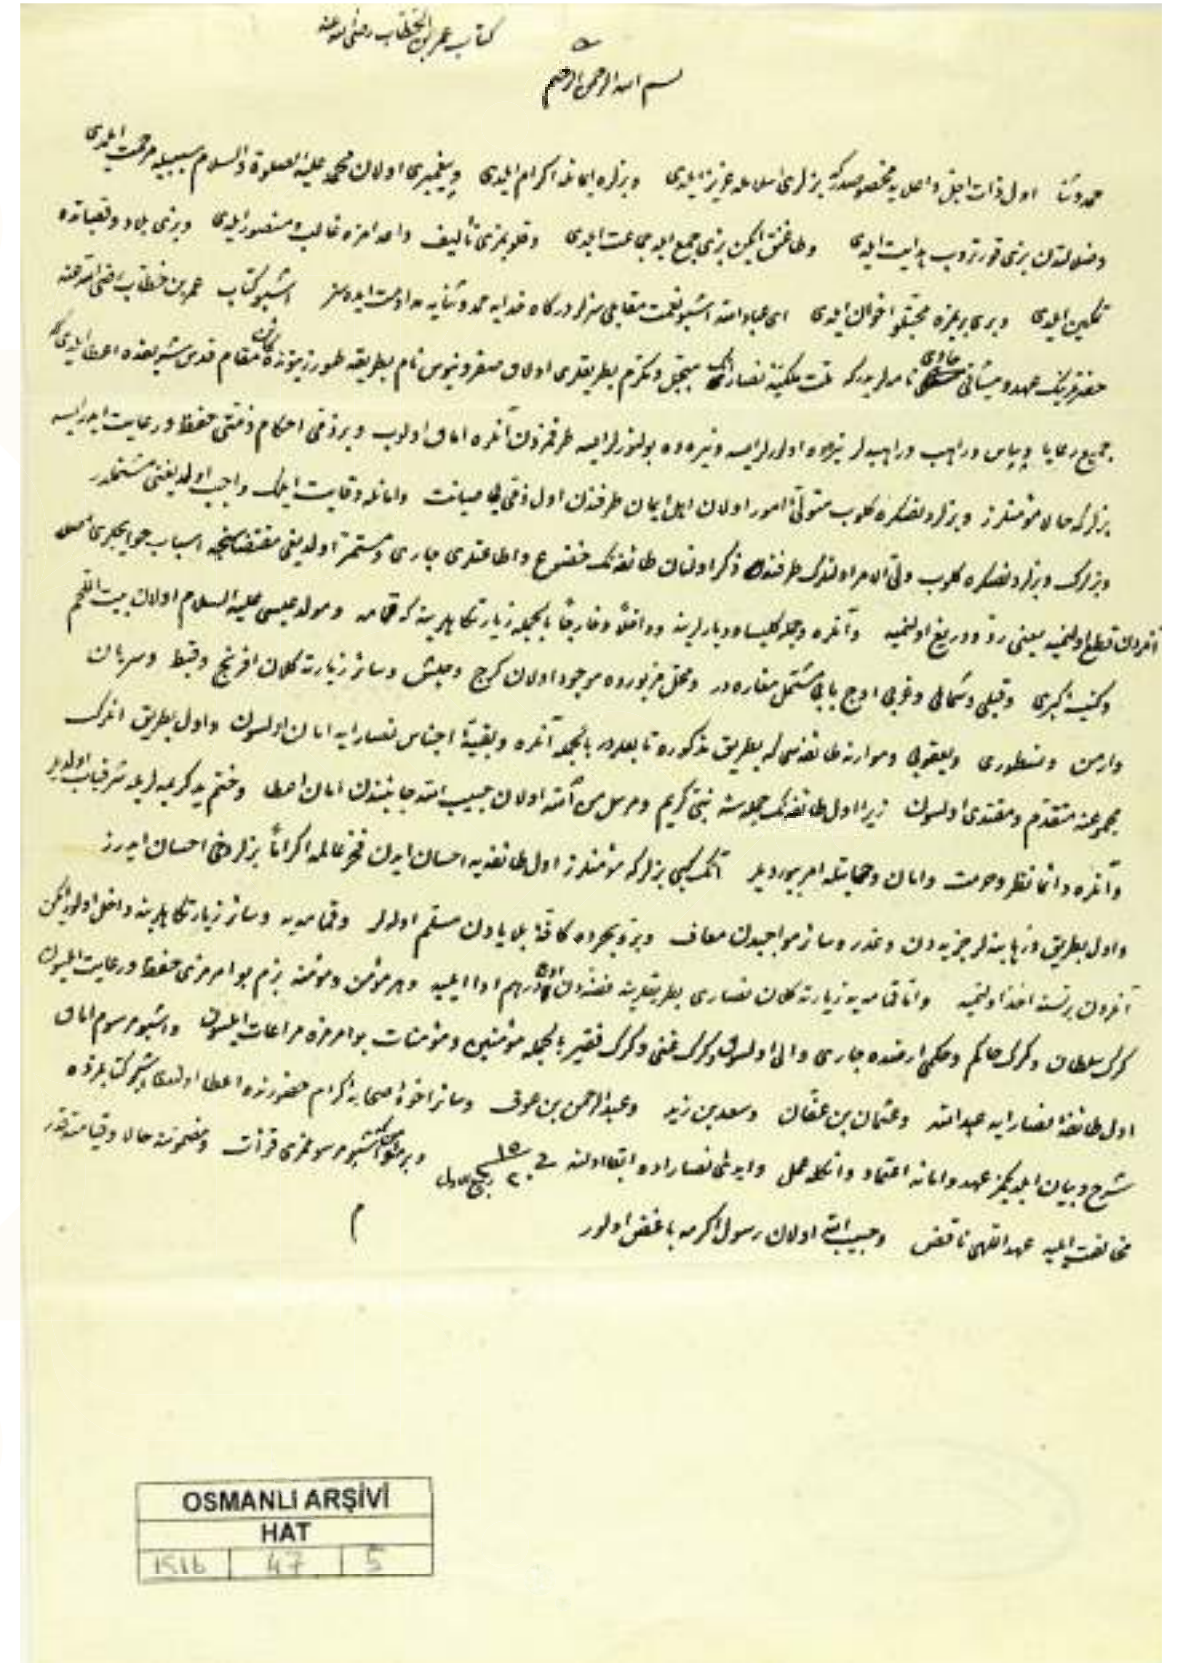 كتاب عمر بن الخطاب رضى الله عنه
بسم الله الرحمن الرحيم
حمد وثنا اول ذات اجل واعلايه مخصوصدركه بزلرى اسلامله عزيز ايلدى وبزلره ايمانله اكرام ايلدى وپيغمبرى اولان محمد عليه الصلوة والسلام سببيله مرحمت ايلدى
وضلالتدن بزى قورتروب هدايت ايلدى وطاغنق ايكن بزى جمع ايدوب جماعت ايلدى وقلوبمزى تأليف واعدامزه غالب ومنصور ايلدى وبزى بلاد وقصباتده
تمكين ايلدى وبرى بريمزه محبتلو اخوان ايلدى اى عباد الله اشبو نعمت مقابلى سزلر دركاه خدايه حمد وثنايه مداومت ايده سز اشبو كتاب عمر بن خطاب رضى الله عنه
حضرتلرينك عهد وميثاقى حاوى نامه لريدركه ملت ملكيه نصارانك مبجل ومكرم بطريقلرى اولان صفرونيوس نام بطريقه طور زيتونده كائن مقام قدس شريفده اعطا ايلدى كه
جميع رعايا وپاپاس وراهب وراهبه لر نره ده اولورلر ايسه ونيره ده بولنورلر ايسه طرفمزدن آنلره امان اولوب وبر ذمى احكام ذمتى حفظ ورعايت ايدر ايسه
بزلركه حالا مؤمنلرز وبزلردنصكره كلوب متولئ امور اولان اهل ايمان طرفندن اول ذمى يى صيانت وامانله وقايت ايلمك واجب اولديغنى
وبزلرك وبزلردنصكره كلوب ولى الامر اولنلرك طرفندن ذكر اولنان طائفه نك خضوع واطاعتلرى جارى ومستمر اولديغى مقتضاسنجه اسباب جوابحلرى
آنلردن قطع اولنميه يعنى رد ودريغ اولنميه وآنلره وجمله كليسا وديارلرينه وداخلاً وخارجاً بالجمله زيارتكاهلرينه كه قمامه ومولد عيسى عليه السلام اولان بيت اللحم
وكنيسه كبرى وقبلى وشمالى وغربى اوچ بابى مشتمل مغاره در ومحل مزبورده موجود اولان كرج وحبش وسائر زيارته كلان افرنج وقبط وسريان
وارمن ونسطورى ويعقوبى وموارنه طائفه سى كه بطريق مذكوره تابعلردر بالجمله آنلره وبقية اجناس نصارايه امان اولسون واول بطريق انلرك
مجموعنه متقدم ومقتدى اولسون زيرا اول طائفه نك جمله سنه نبئ كريم ومرسل من الله اولان حبيب الله جانبندن امان اعطا وختم يد كريمه لريله شرفياب اولديلر
وآنلره دائما نظر وحرمت وامان وحمايتله امر بيورديلر آنك كبى بزلركه مؤمنلرز اول طائفه يه احسان ايدن فخر عالمه اكراماً بزلر دخى احسان ايدرز
واول بطريق ورهابينلر جزيه دن وغدر وسائر مواجبدن معاف وبر وبحرده كافة بلايادن مسلم اولالر وقمامه يه وسائر زيارتكاهلرينه داخل اولور ايكن
آنلردن برنسنه اخذ اولنميه واما قمامه يه زيارته كلان نصارى بطريقلرينه فضه دن درهم ادا ايليه وهر مؤمن ومؤمنه بزم بو امرمزى حفظ ورعايت ايلسون
كرك سلطان وكرك حاكم وحكمى ارضده جارى والى اولسون وكرك غنى وكرك فقير بالجمله مؤمنين ومؤمنات بو امرمزه مراعات ايلسون واشبو مرسوم امان
اول طائفة نصارايه عبد الله وعثمان بن عفان وسعد بن زيد وعبد الرحمن بن عوف وسائر اخوة صحابه كرام حضورنده اعطا اولندى اشبو كتابمزده
شرح وبيان ايلديكمز عهد وامانه اعتماد وانكله عمل وايدئ نصاراده ابقا اولنه فى ٢٠ ربيع الاول ١٥ وبر اشبو مرسوممزى قرائت ومضمونه حالا وقيامته قدر
مخالفت ايليه عهد اللهى ناقض وحبيب الله اولان رسول اكرمه باغض اولور
م
OSMANLI ARŞİVİ
HAT
1516 47 5